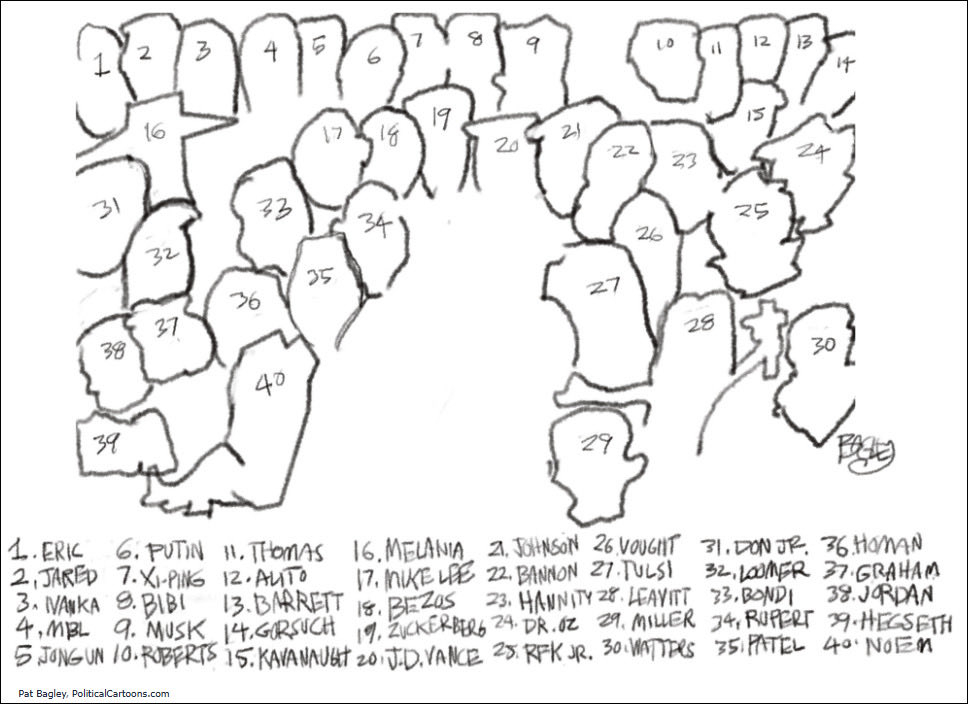 1 2 3 4 5 6 7 8 9 10 11 12 13 14
15
16 17 18 19 20 21 22 23 24
31 33 34 25
32 26
35 27
36
37 28
38 30
40
39 29
BAGLEY
1. ERIC 6. PUTIN 11. THOMAS 16. MELANIA 21. JOHNSON 26. VOUGHT 31. DON JR. 36. HOMAN
2. JARED 7. XI-PING 12. ALITO 17. MIKE LEE 22. BANNON 27. TULSI 32. LOOMER 37. GRAHAM
3. IVANKA 8. BIBI 13. BARRETT 18. BEZOS 23. HANNITY 28. LEAVITT 33. BONDI 38. JORDAN
4. MBL 9. MUSK 14. GORSUCH 19. ZUCKERBERG 24. DR. OZ 29. MILLER 34. RUPERT 39. HEGSETH
5 JONG UN 10. ROBERTS 15. KAVANAUGH 20. J.D. VANCE 25. RFK JR. 30. WATTERS 35. PATEL 40. NOEM
Pat Bagley, PoliticalCartoons.com